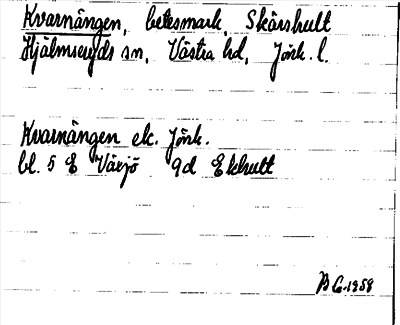 Kvarnängen, betesmark, Skärshult
Hjälmseryds sn, Västra hd, Jönk. l.
Kvarnängen ek. Jönk.
bl. 5 E Växjö 9d Ekhult
1958